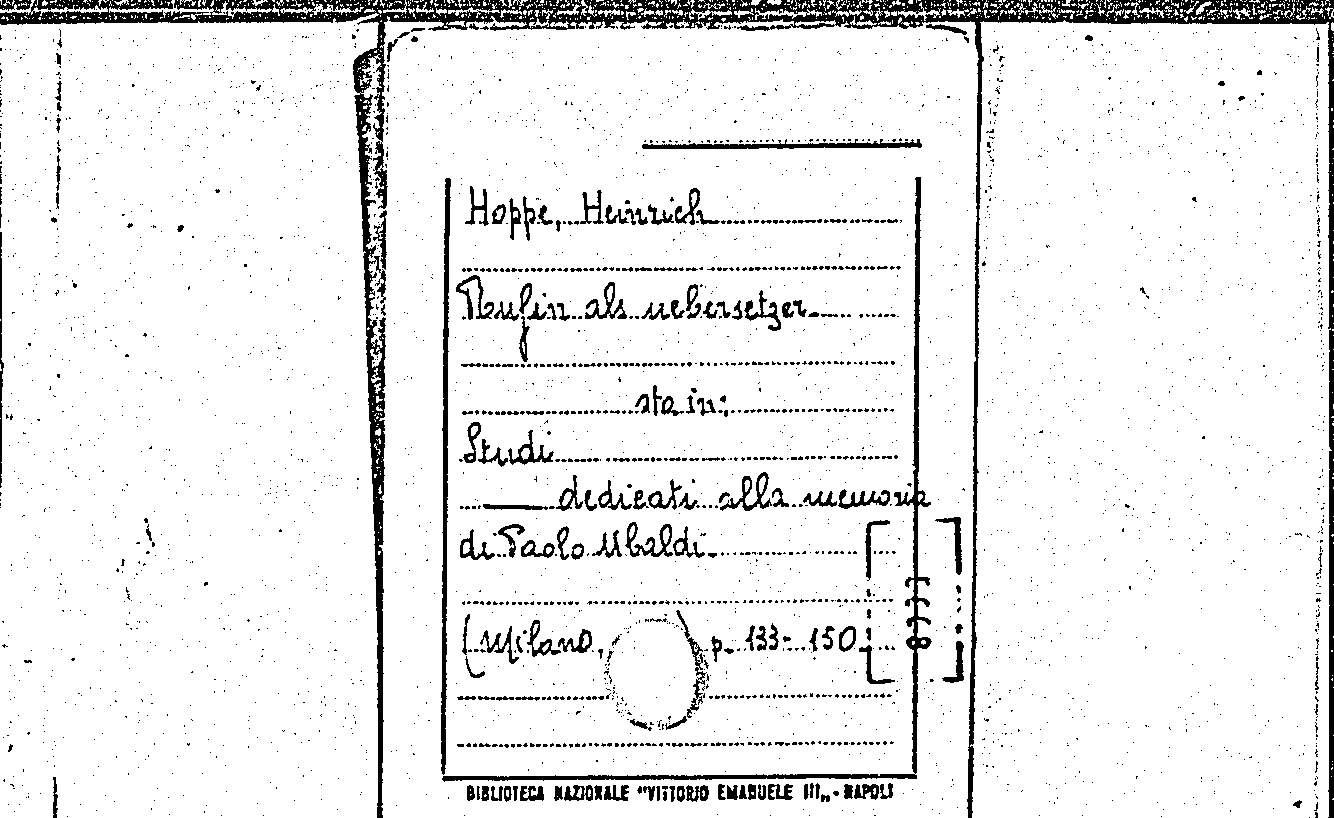 Hoppe, Heinrich
Rufin als uebersetzer.
sta in:
Studi
—— dedicati alla memoria
di Paolo Ubaldi.
(Milano, p. 133-150.
BIBLIOTECA NAZIONALE "VITTORIO EMANUELE III„ - NAPOLI